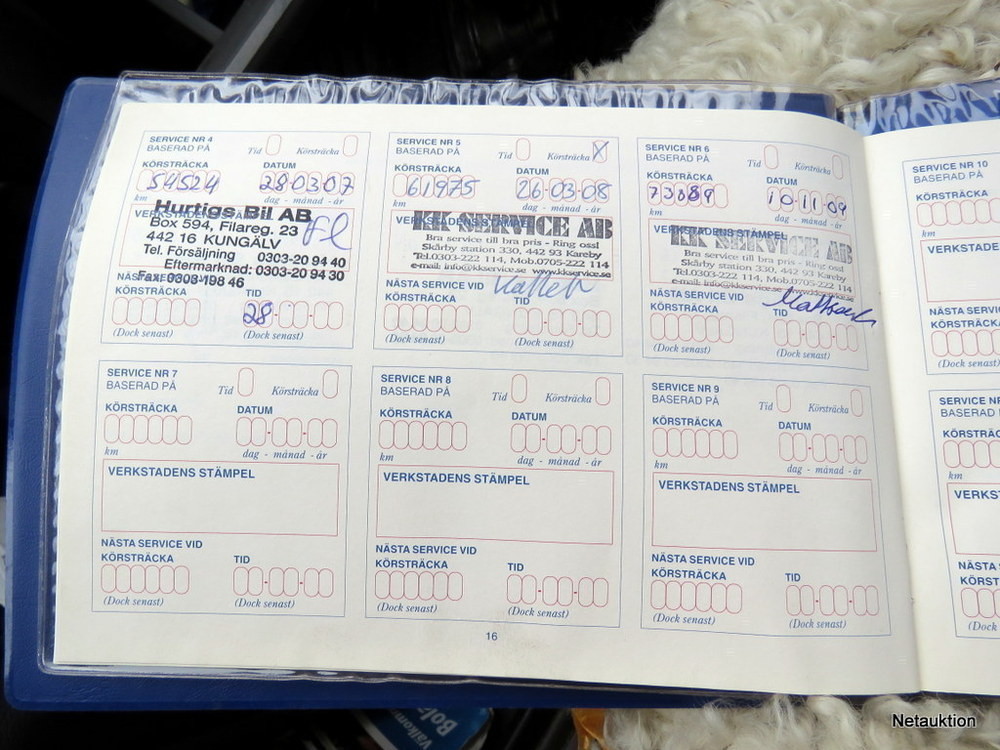 SERVICE NR 4
BASERAD PÅ
Tid
Körsträcka
KÖRSTRÄCKA
DATUM
54524
28-03-07
km
dag - månad - år
VERKSTADENS STÄMPEL
Hurtigs Bil AB
Box 594, Filareg. 23
442 16 KUNGÄLV
Tel. Försäljning 0303-20 94 40
Eftermarknad: 0303-20 94 30
Fax: 0303-198 46
NÄSTA SERVICE VID
KÖRSTRÄCKA
TID
28
(Dock senast)
(Dock senast)
SERVICE NR 5
BASERAD PÅ
Tid
Körsträcka X
KÖRSTRÄCKA
DATUM
61975
26-03-08
km
dag - månad - år
VERKSTADENS STÄMPEL
KK SERVICE AB
Bra service till bra pris - Ring oss!
Skårby station 330, 442 93 Kareby
Tel.0303-222 114, Mob.0705-222 114
e-mail: info@kkservice.se www.kkservice.se
NÄSTA SERVICE VID
KÖRSTRÄCKA
TID
(Dock senast)
(Dock senast)
SERVICE NR 6
BASERAD PÅ
Tid
Körsträcka
KÖRSTRÄCKA
DATUM
10-11-09
km
dag - månad - år
VERKSTADENS STÄMPEL
KK SERVICE AB
Bra service till bra pris - Ring oss!
Skårby station 330, 442 93 Kareby
Tel.0303-222 114, Mob.0705-222 114
e-mail: info@kkservice.se www.kkservice.se
NÄSTA SERVICE VID
KÖRSTRÄCKA
TID
(Dock senast)
(Dock senast)
SERVICE NR 7
BASERAD PÅ
Tid
Körsträcka
KÖRSTRÄCKA
DATUM
km
dag - månad - år
VERKSTADENS STÄMPEL
NÄSTA SERVICE VID
KÖRSTRÄCKA
TID
(Dock senast)
(Dock senast)
SERVICE NR 8
BASERAD PÅ
Tid
Körsträcka
KÖRSTRÄCKA
DATUM
km
dag - månad - år
VERKSTADENS STÄMPEL
NÄSTA SERVICE VID
KÖRSTRÄCKA
TID
(Dock senast)
(Dock senast)
SERVICE NR 9
BASERAD PÅ
Tid
Körsträcka
KÖRSTRÄCKA
DATUM
km
dag - månad - år
VERKSTADENS STÄMPEL
NÄSTA SERVICE VID
KÖRSTRÄCKA
TID
(Dock senast)
(Dock senast)
16
SERVICE NR 10
BASERAD PÅ
KÖRSTRÄCKA
km
VERKSTADENS
NÄSTA SERVI
KÖRSTRÄCKA
(Dock senast)
SERVICE N
BASERAD P
KÖRSTRÄC
km
VERKS
NÄSTA
KÖRST
(Dock
Netauktion